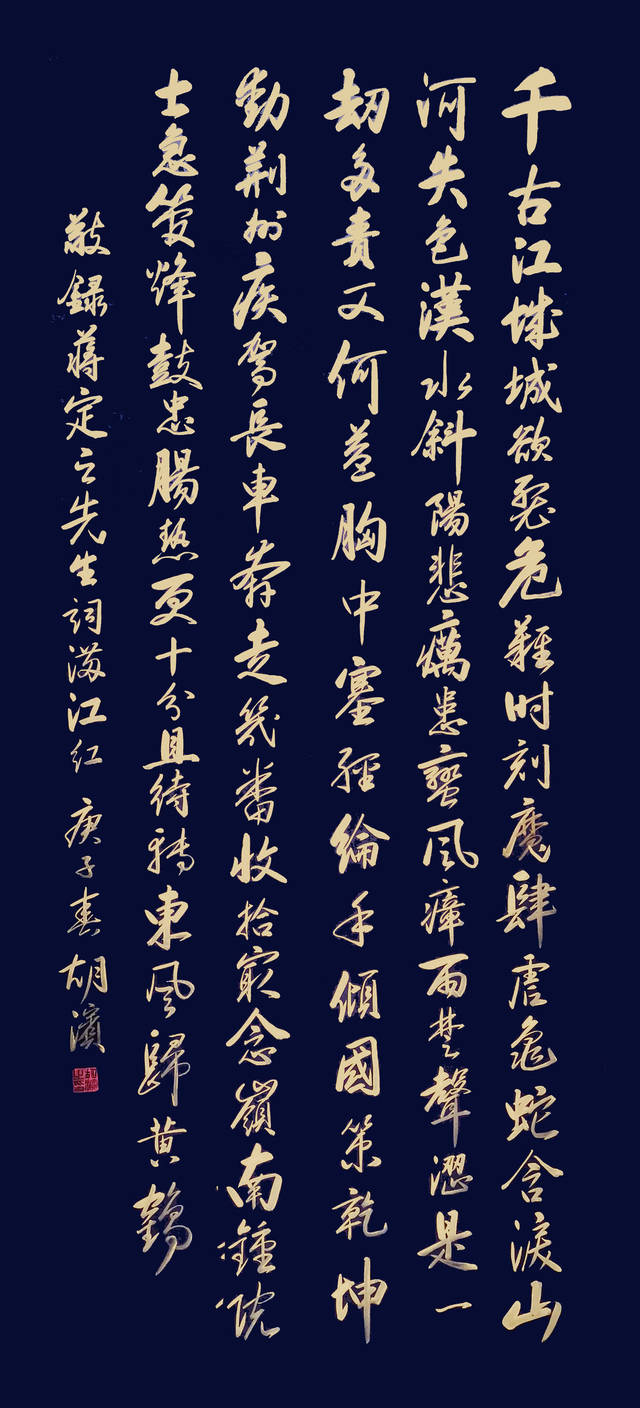 千古江城城欲惡危難时刻魔肆虐龜蛇含淚山
河失色漢水斜陽悲癘患蠻風瘴雨楚聲澀是一
劫多責又何益胸中塞經綸手傾國策乾坤
動荊州疾驾長車奔走幾番收拾最念嶺南鍾院
士急發烽鼓忠腸熱更十分且待轉東風歸黄鶴
敬録蔣定之先生詞滿江红 庚子春胡濱